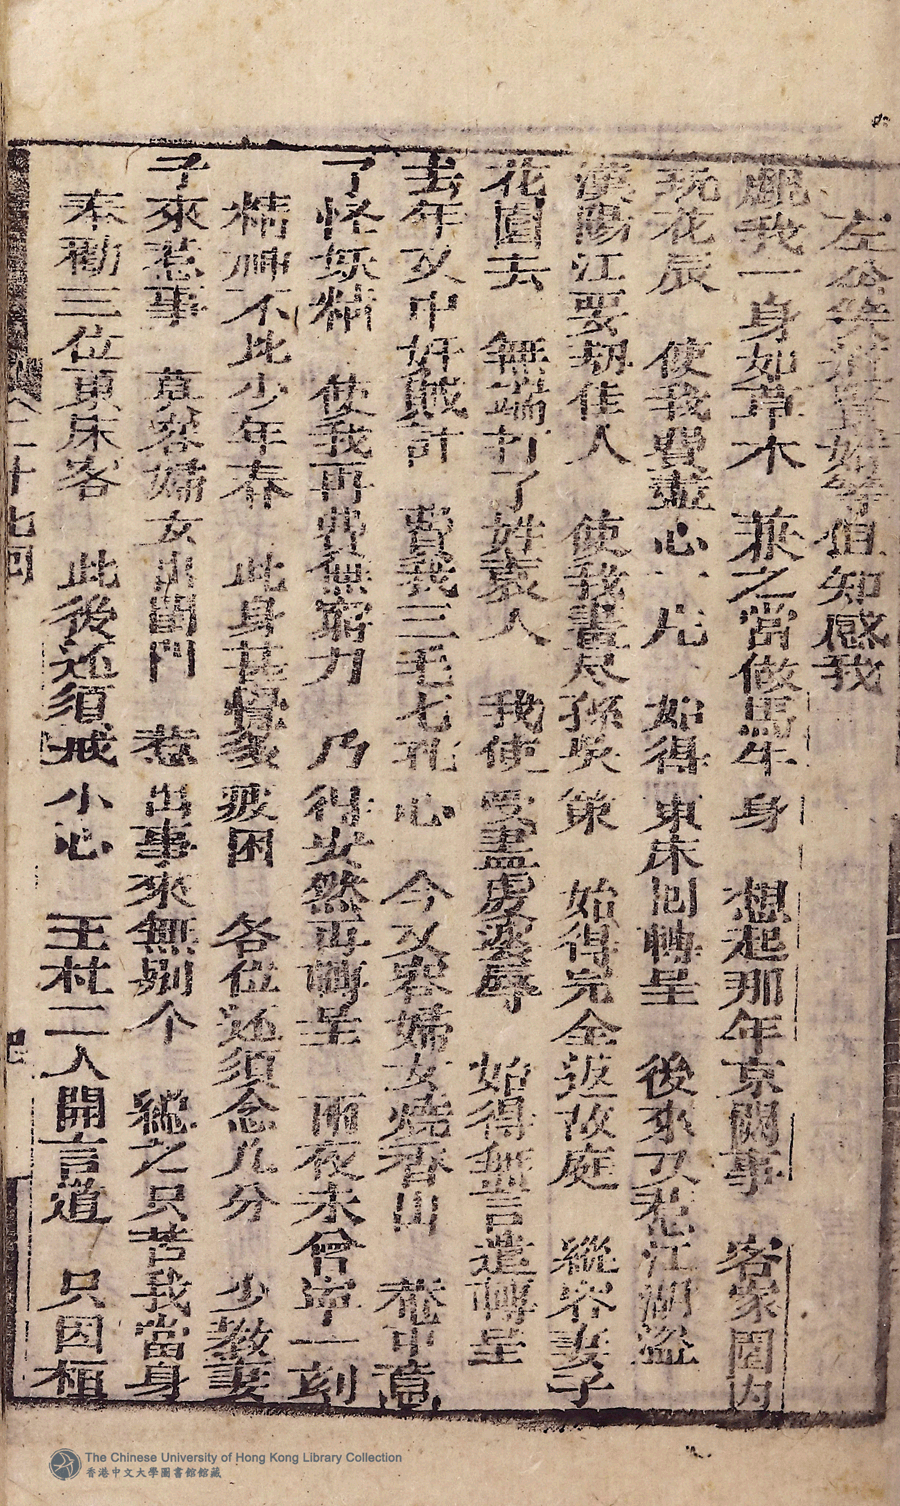 左公笑道賢婿等但知感我
戲我一身如草木 兼之當做馬牛身 想起那年京關事 客家閨內
玩花辰 使我費盡心一片 始得東床囘轉呈 後來又惹江湖盜
漢陽江要刼佳人 使我畫尽孫吳策 始得完全返故庭 縱容妻子
花園去 無端打了姓袁人 我使受盡虔婆辱 始得無言遣轉呈
去年又中奸賊計 費我三毛七孔心 今又容婦女燒香山 菴中 
了怪妖精 使我再費無窮力 乃得安然再轉呈 兩夜未曾寧一刻
精神不比少年春 此身甚覺多疲困 各位还須念几分 少教妻
子來惹事 莫容婦女出閨門 惹出事來無别个 總之只苦我當身
奉勸三位東床客 此後还須戒小心 王杜二人開言道 只因桓
二十七囘
The Chinese University of Hong Kong Library Collection
香港中文大學圖書館館藏